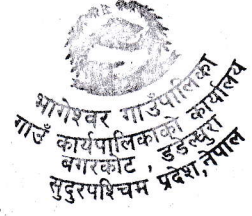 भागेश्वर गाउँपालिका
गाउँ कार्यपालिकाको कार्यालय
बगरकोट , डडेल्धुरा
सुदुरपश्चिम प्रदेश,नेपाल